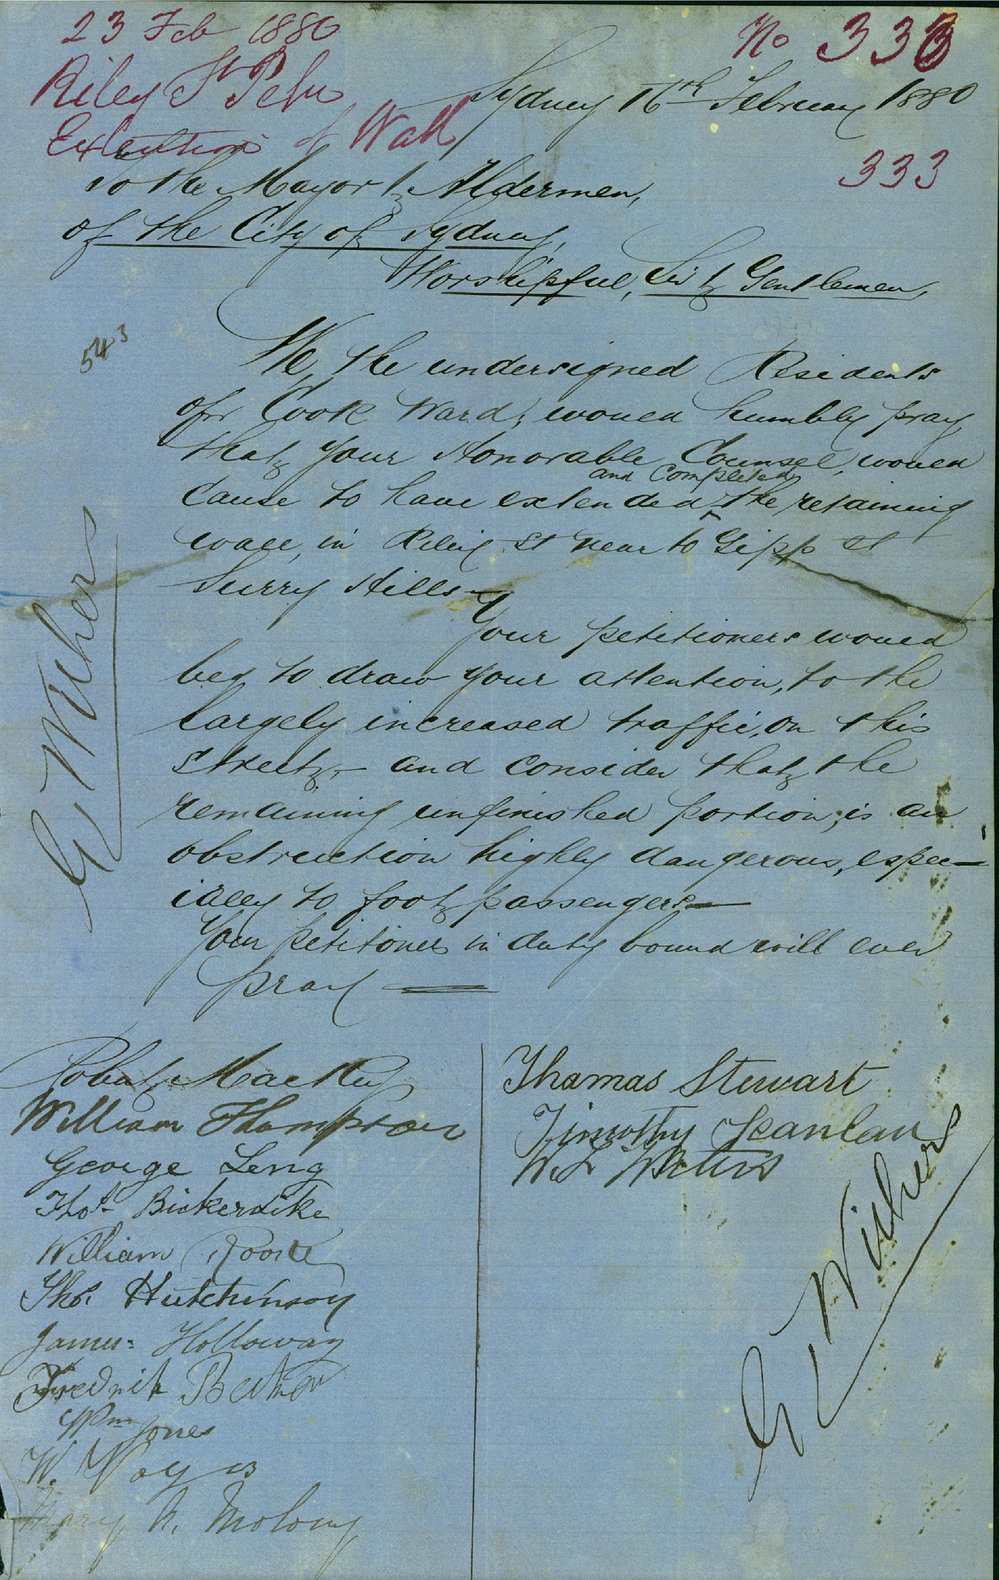 23 Feb 1880
No 333
Riley St Petn
Sydney 16th February 1880
Extention of Wall
333
To the Mayor & Aldermen,
of the City of Sydney,
Worshipful, Sir & Gentlemen,
543
We the undersigned Residents
of Cook Ward, would humbly pray
that your Honorable Counsel, would
and Completed
cause to have extended ‸ the retaining
wall, in Riley St near to Gipp St
Surry Hills
Your petitioners would
beg to draw your attention, to the
largely increased traffic, on this
street, and consider that the
remaining unfinished portion, is an
obstruction highly dangerous, espec-
ially to foot passengers
Your petitioners in duty bound will ever
pray
Robert Mackey
William Thompson
George Leng
Thos Bickerdike
William
Thos. Hutchinson
James Holloway
Fredrick
Wm Jones
W.
Mary A. Molony
Thomas Stewart
Timothy Scanlan
W. L. Waters
G. Withers
G. Withers